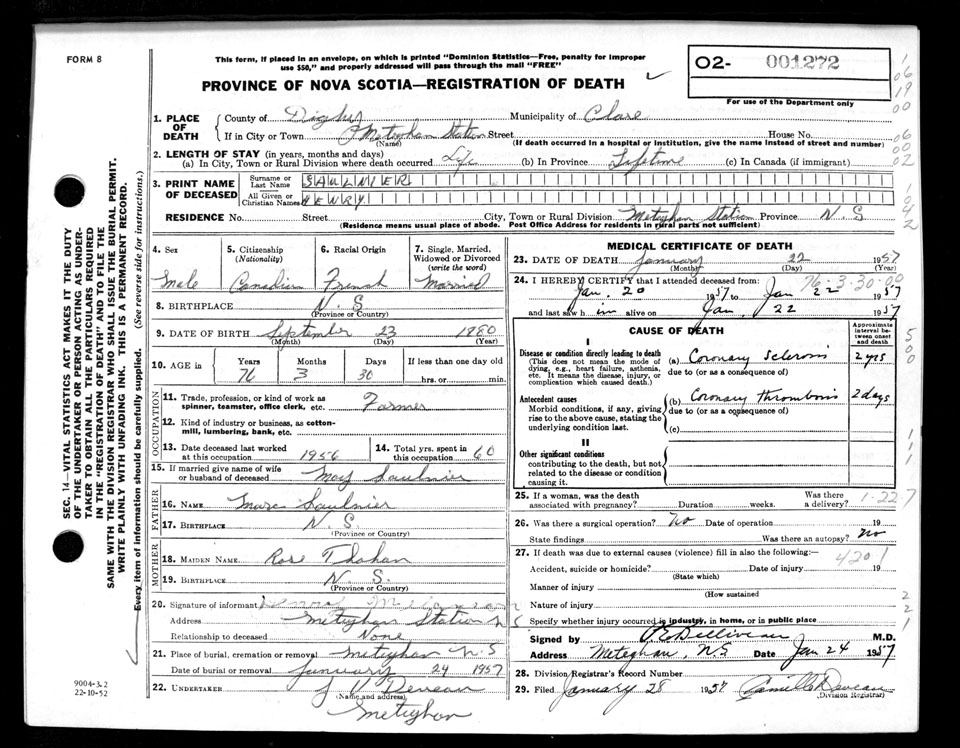 FORM 8
This form, if placed in an envelope, on which is printed "Dominion Statistics—Free, penalty for improper
use $50," and properly addressed will pass through the mail "FREE"
O2- 001272
For use of the Department only
PROVINCE OF NOVA SCOTIA—REGISTRATION OF DEATH
1. PLACE OF DEATH
County of Digby Municipality of Clare
If in City or Town Meteghan Station Street House No.
(Name) (If death occurred in a hospital or institution, give the name instead of street and number)
2. LENGTH OF STAY (in years, months and days)
(a) In City, Town or Rural Division where death occurred Life (b) In Province Lifetime (c) In Canada (if immigrant)
3. PRINT NAME OF DECEASED
Surname or Last Name SAULNIER
All Given or Christian Names HENRY
RESIDENCE No. Street City, Town or Rural Division Meteghan Station Province N. S
(Residence means usual place of abode. Post Office Address for residents in rural parts not sufficient)
4. Sex Male
5. Citizenship (Nationality) Canadian
6. Racial Origin French
7. Single, Married, Widowed or Divorced (write the word) Married
8. BIRTHPLACE N. S.
(Province or Country)
9. DATE OF BIRTH September 23 1880
(Month) (Day) (Year)
10. AGE in Years 76 Months 3 Days 30 If less than one day old hrs. or min.
OCCUPATION
11. Trade, profession, or kind of work as spinner, teamster, office clerk, etc. Farmer
12. Kind of industry or business, as cotton-mill, lumbering, bank, etc.
13. Date deceased last worked at this occupation 1956
14. Total yrs. spent in this occupation 60
15. If married give name of wife or husband of deceased May Saulnier
FATHER
16. NAME Marc Saulnier
17. BIRTHPLACE N. S.
(Province or Country)
MOTHER
18. MAIDEN NAME Rose
19. BIRTHPLACE N. S.
(Province or Country)
20. Signature of informant
Address Meteghan Station N S
Relationship to deceased None
21. Place of burial, cremation or removal Meteghan N. S
Date of burial or removal January 24 1957
22. UNDERTAKER J V Deveau
(Name and address)
Meteghan
MEDICAL CERTIFICATE OF DEATH
23. DATE OF DEATH January 22 1957
(Month) (Day) (Year)
76-3-30-00
24. I HEREBY CERTIFY that I attended deceased from:
Jan. 20 1957 to Jan 22 1957
and last saw him alive on Jan. 22 1957
CAUSE OF DEATH
Approximate interval between onset and death
I
Disease or condition directly leading to death (a) Coronary sclerosis 2 yrs
(This does not mean the mode of dying, e.g., heart failure, asthenia, etc. It means the disease, injury, or complication which caused death.)
due to (or as a consequence of)
Antecedent causes (b) Coronary thrombosis 2 days
Morbid conditions, if any, giving rise to the above cause, stating the underlying condition last.
due to (or as a consequence of)
(c)
II
Other significant conditions
contributing to the death, but not related to the disease or condition causing it.
25. If a woman, was the death associated with pregnancy? Duration weeks. Was there a delivery?
1-22 7
26. Was there a surgical operation? No Date of operation 19
State findings Was there an autopsy? No
27. If death was due to external causes (violence) fill in also the following:
4201
Accident, suicide or homicide? Date of injury 19
(State which)
Manner of injury
(How sustained
Nature of injury
Specify whether injury occurred in industry, in home, or in public place
Signed by P E Belliveau M.D.
Address Meteghan, N.S Date Jan 24 1957
28. Division Registrar's Record Number
29. Filed January 28 1957 Camille Deveau
(Division Registrar)
SEC. 14—VITAL STATISTICS ACT MAKES IT THE DUTY
OF THE UNDERTAKER OR PERSON ACTING AS UNDER-
TAKER TO OBTAIN ALL THE PARTICULARS REQUIRED
IN THE "REGISTRATION OF DEATH" AND TO FILE THE
SAME WITH THE DIVISION REGISTRAR WHO SHALL ISSUE THE BURIAL PERMIT.
WRITE PLAINLY WITH UNFADING INK. THIS IS A PERMANENT RECORD.
Every item of information should be carefully supplied. (See reverse side for instructions.)
9004-3.2
22-10-52